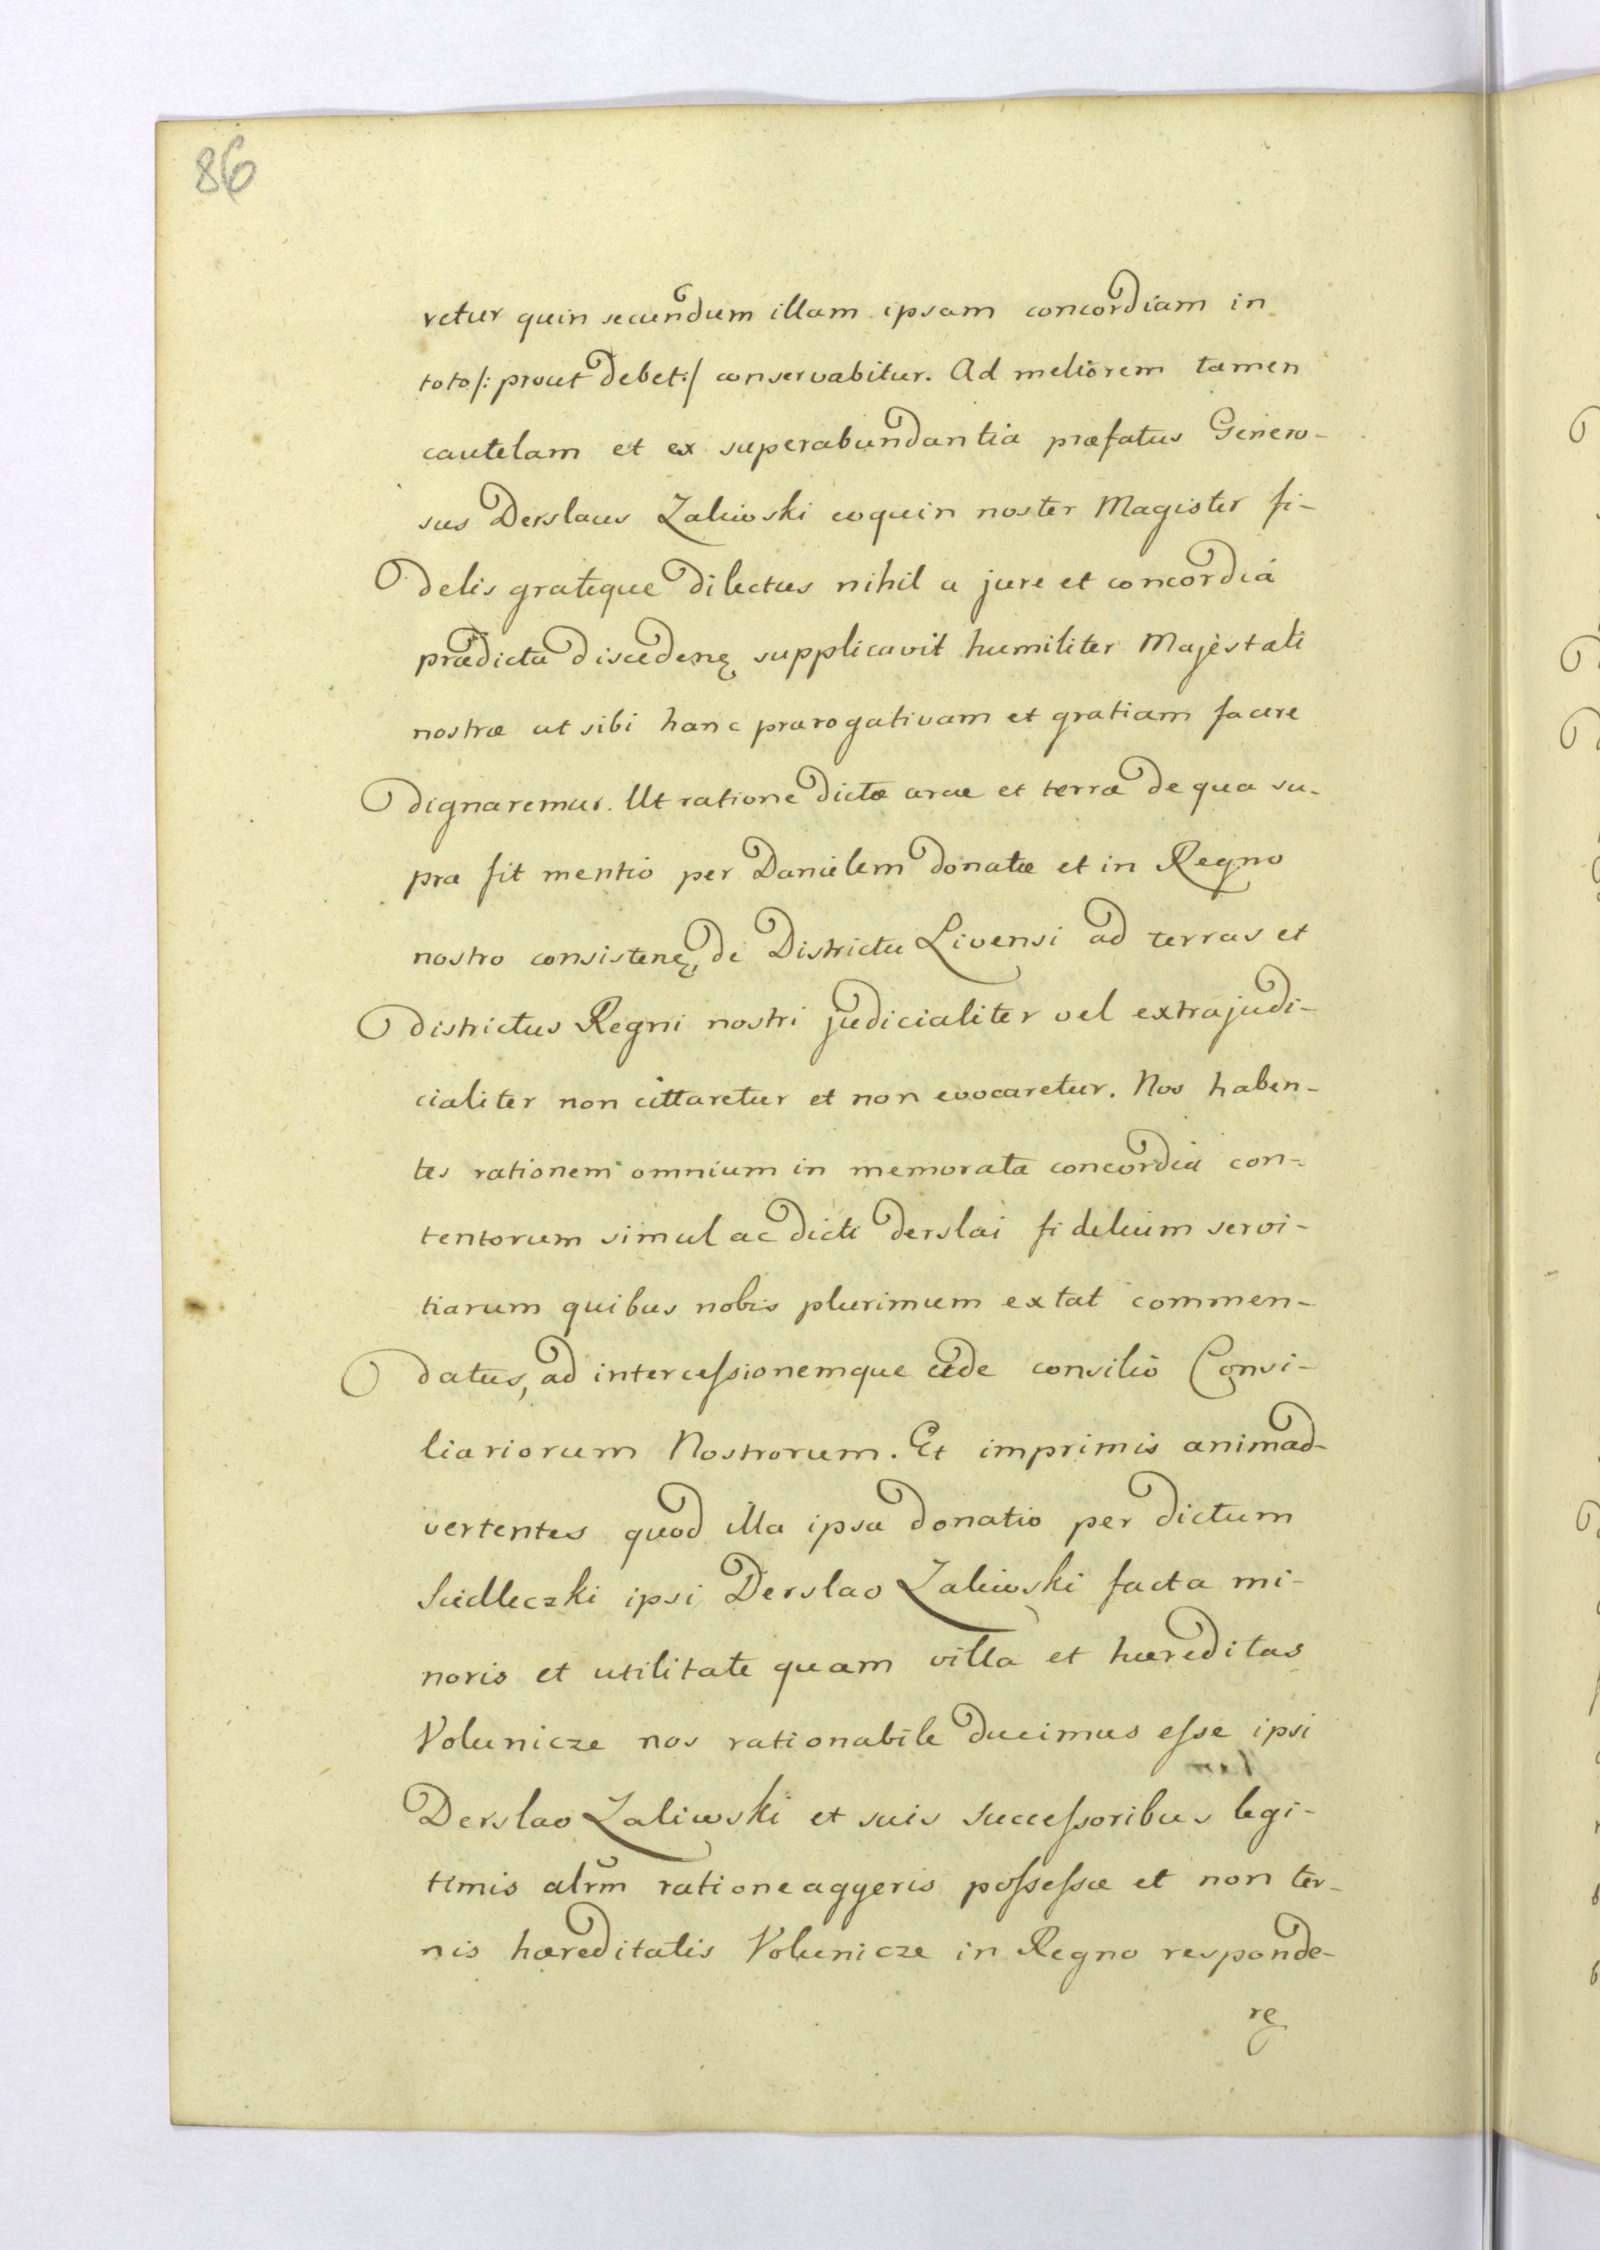 86
retur quin secundum illam ipsam concordiam in
toto /: prout debet :/ conservabitur. Ad meliorem tamen
cautelam et ex superabundantia præfatus Genero-
sus Derslaus Zaliwski coquin noster Magister fi-
delis grateque dilectus nihil a jure et concordiâ
prædicta discedenę supplicavit humiliter Majestati
nostræ ut sibi hanc prærogativam et gratiam facere
dignaremur. Ut ratione dictæ aræ et terræ de qua su-
pra fit mentio per Danielem donatæ et in Regno
nostro consistenę, de Districtu Livensi ad terras et
districtus Regni nostri judicialiter vel extrajudi-
cialiter non cittaretur et non evocaretur. Nos haben-
tes rationem omnium in memorata concordiâ con-
tentorum simul ac dicti derslai fidelium servi-
tiarum quibus nobis plurimum extat commen-
datus, ad intercessionemque et de consilio Consi-
liariorum Nostrorum. Et imprimis animad-
vertentes quod illa ipsa donatio per dictum
Siedleczki ipsi Derslao Zaliwski facta mi-
noris et utilitate quam villa et hæreditas
Volunicze nos rationabile ducimus esse ipsi
Derslao Zaliwski et suis successoribus legi-
timis alrm̃ ratione aggeris possessæ et non ter-
nis hæreditatis Volunicze in Regno responde-
re